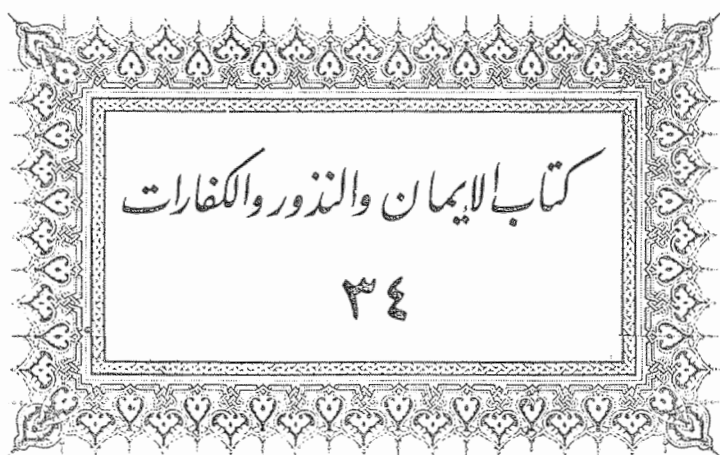 كتاب الايمان والنذور والكفارات
٣٤